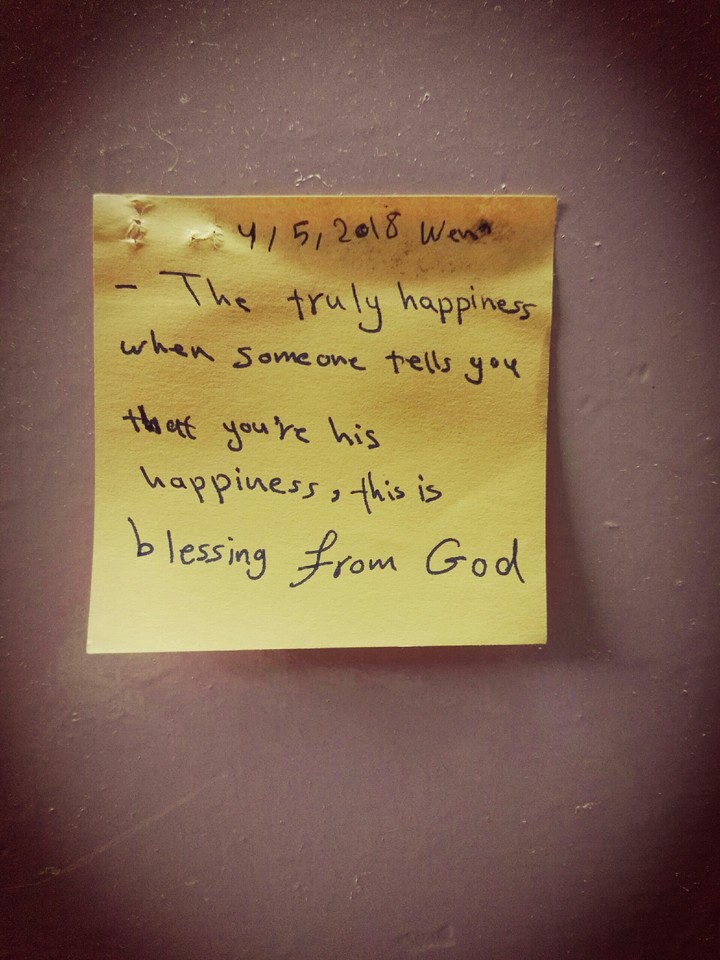 4/5/2018 Wen
- The truly happiness
when someone tells you
that you're his
happiness, this is
blessing from God